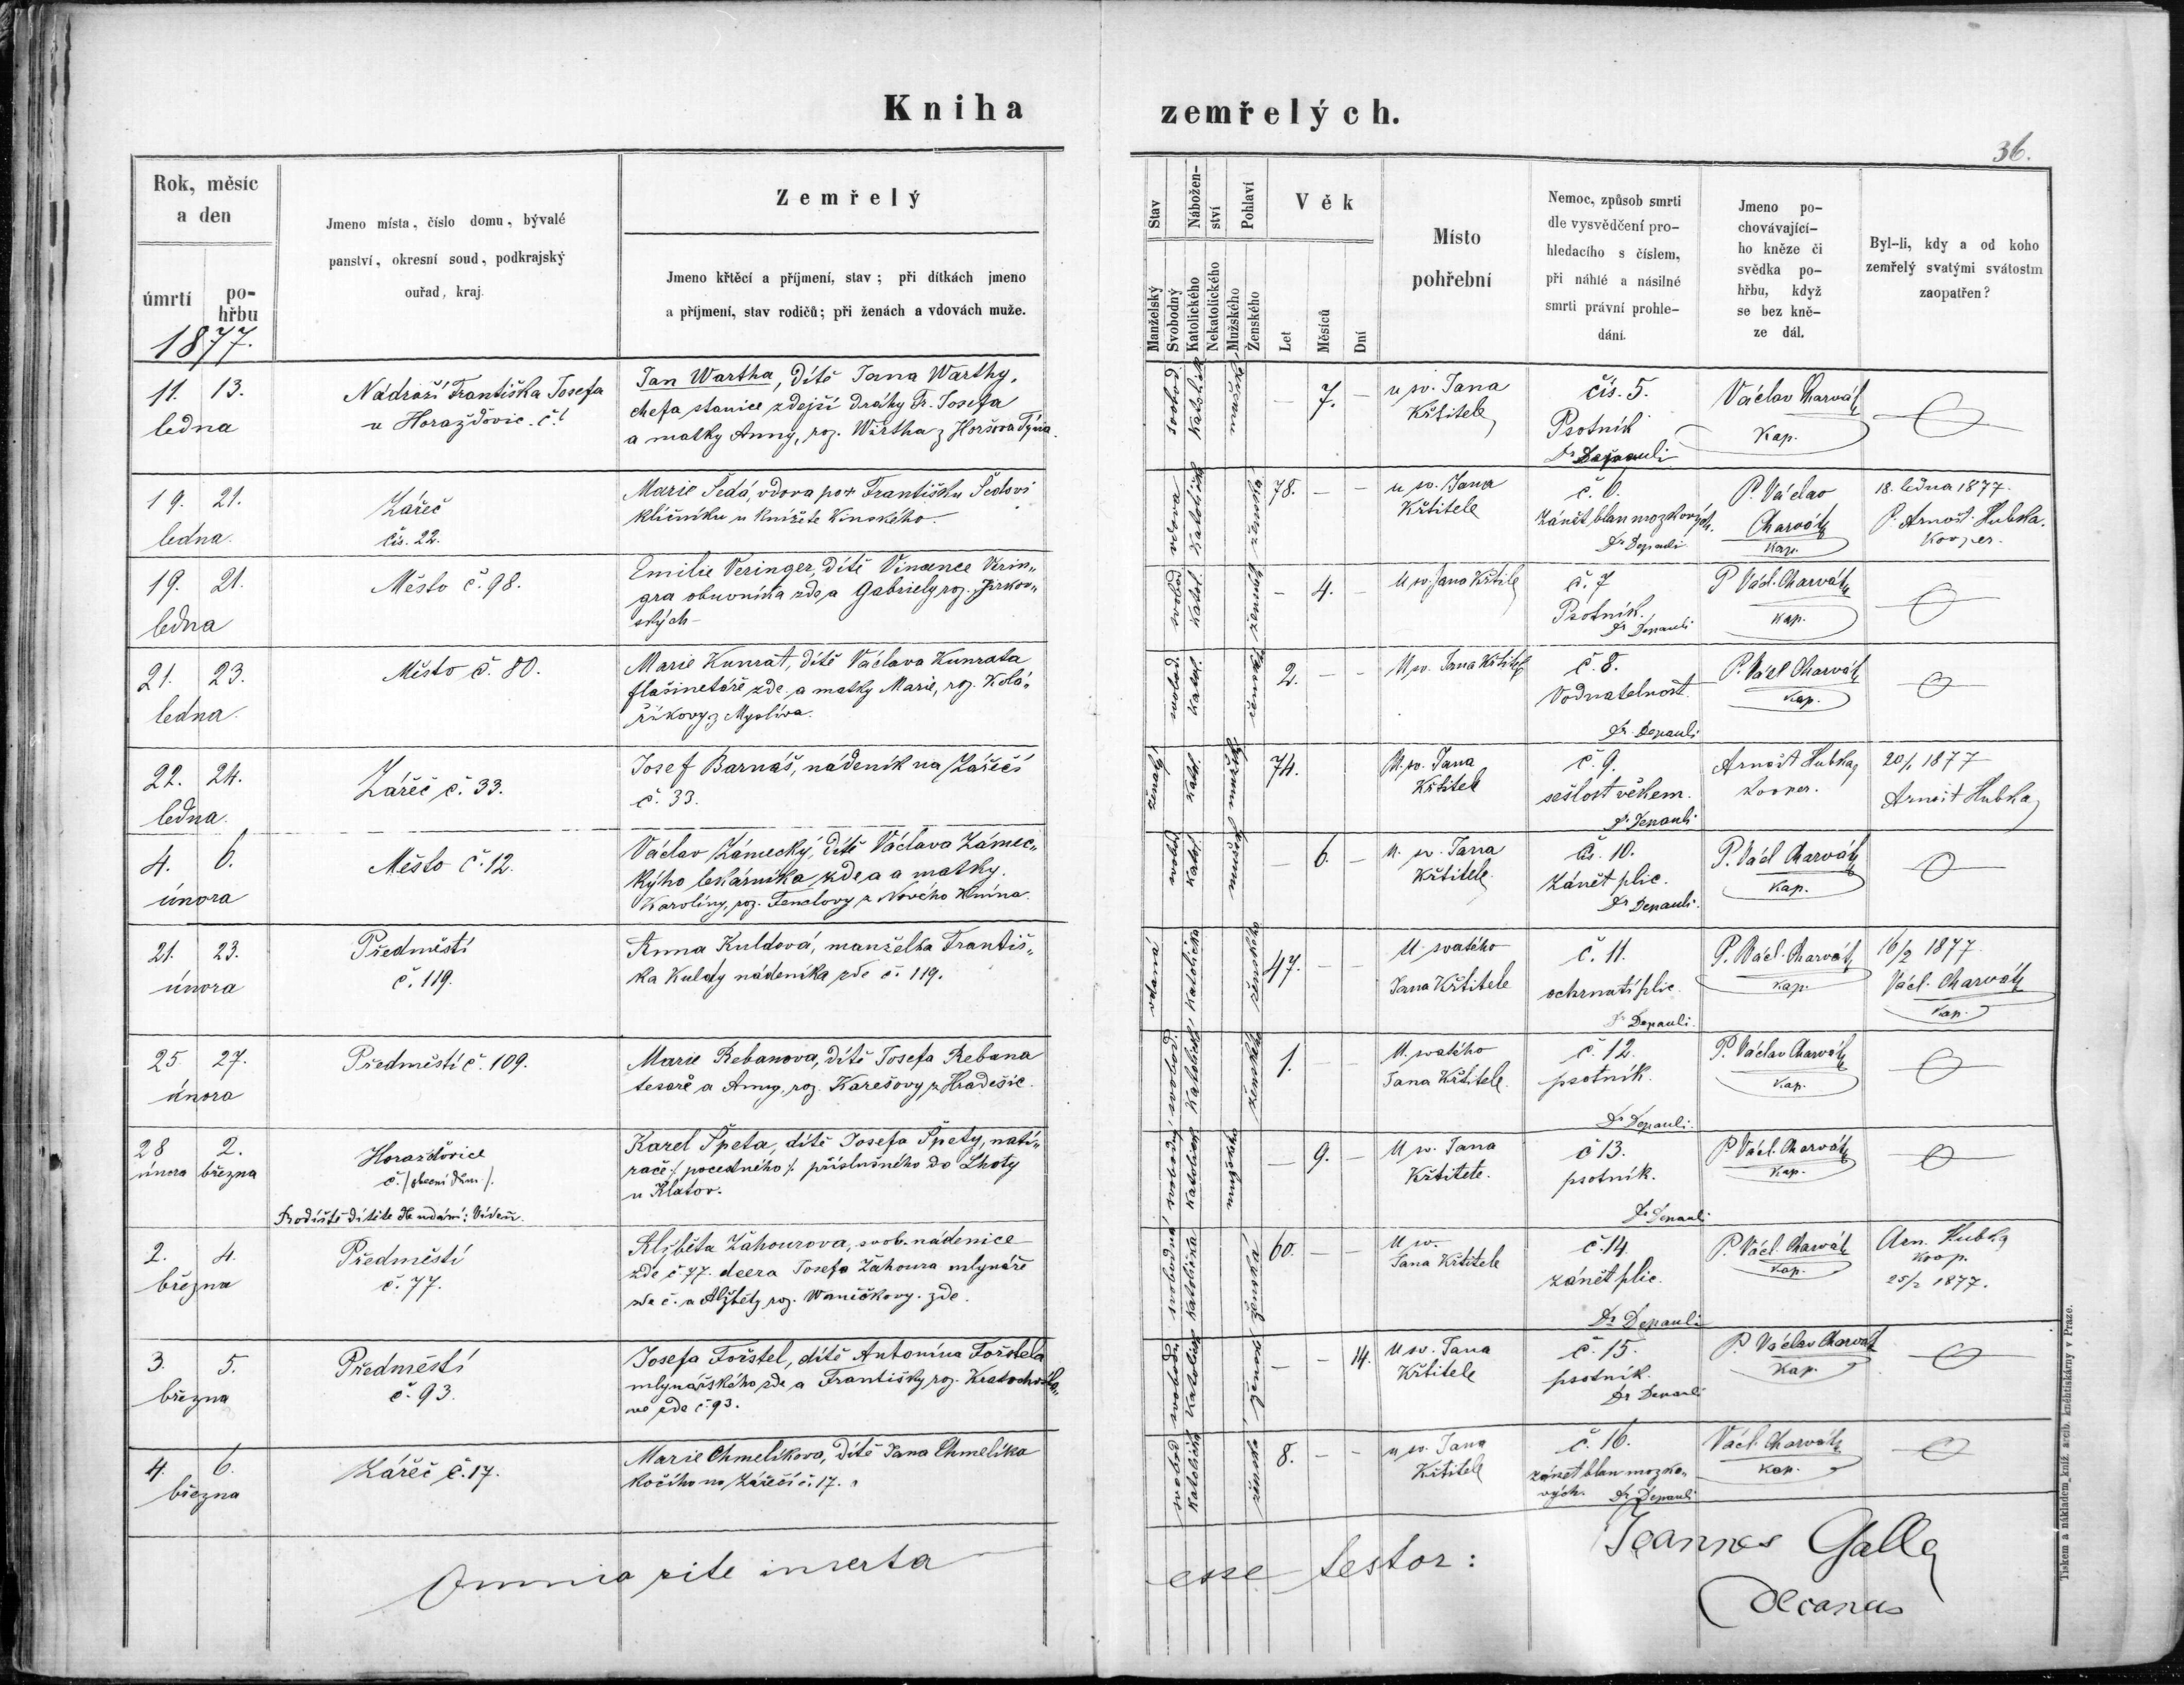 Kniha zemřelých.
36.
Rok, měsíc
a den
úmrtí
po-
hřbu
1877.
Jmeno místa, číslo domu, bývalé
panství, okresní soud, podkrajský
ouřad, kraj.
Zemřelý
Jmeno křtěcí a příjmení, stav; při dítkách jmeno
a příjmení, stav rodičů; při ženách a vdovách muže.
Stav
Manželský
Svobodný
Nábožen-
ství
Katolického
Nekatolického
Pohlaví
Mužského
Ženského
Věk
Let
Měsíců
Dní
Místo
pohřební
Nemoc, způsob smrti
dle vysvědčení pro-
hledacího s číslem,
při náhlé a násilné
smrti právní prohle-
dání.
Jmeno po-
chovávající-
ho kněze či
svědka po-
hřbu, když
se bez kně-
ze dál.
Byl-li, kdy a od koho
zemřelý svatými svátostm
zaopatřen?
11. 13.
ledna
Nádraží Františka Josefa
u Horažďovic č. 1
Jan Wartha, dítě Jana Warthy,
chefa stanice zdejší dráhy Fr. Josefa
a matky Anny, roz. Wirtha z Horšova Týna.
svobod
katolick
mužské
– 7. –
u sv. Jana
Křtitele
čís. 5.
Psotník
Dr Depauli
Václav Charvát
Kap.
19. 21.
ledna.
Zářeč
čís. 22.
Marie Šedá, vdova po Františku Šedovi
klíčníku u knížete Kinského.
vdova
katolická
ženská
78. – –
u sv. Jana
Křtitele
č. 6.
Zánět blan mozkových.
Dr Depauli
P. Václav
Charvát
Kap.
18. ledna 1877.
P. Arnošt Hubka,
Kooper.
19. 21.
ledna
Město č. 98.
Emilie Veringer, dítě Vincence Verin„
gra obuvníka zde a Gabriely roz. Jirkov„
ských
svobod
katol.
ženská
– 4. –
U sv. Jana Křtitele
č. 7
Psotník.
Dr Depauli
P Václ. Charvát
Kap.
21. 23.
ledna.
Město č. 80.
Marie Kunrat, dítě Václava Kunrata
flašinetáře zde a matky Marie, roz. Kolá„
říkovy z Myslíva.
svobod
katol.
ženská
2. – –
U sv. Jana Křtitele
č. 8.
Vodnatelnost.
Dr. Depauli
P. Václ Charvát
Kap.
22. 24.
ledna.
Zářeč č. 33.
Josef Barnáš, nádeník na Zářečí
č. 33.
ženatý
katol.
mužské
74.
U. sv. Jana
Křtitele
č. 9.
sešlost věkem.
Dr Depauli
Arnošt Hubka,
kooper.
20/1 1877
Arnošt Hubka
4. 6.
února
Město č. 12.
Václav Zámecký, dítě Václava Zámec„
kýho lekárníka zde a a matky
Karolíny, roz. Fenclovy z Nového Knína.
svobod
katol.
mužské
– 6. –
U. sv. Jana
Křtitele.
čís. 10.
Zánět plic.
Dr Depauli.
P. Václ Charvát
Kap.
21. 23.
února
Předměstí
č. 119.
Anna Kuldová, manželka Františ„
ka Kuldy nádeníka zde č. 119.
vdaná
katolická
ženského
47. – –
U svatého
Jana Křtitele
č. 11.
ochrnutí plic.
Dr Depauli.
P. Václ. Charvát
Kap.
16/2 1877.
Václ. Charvát
Kap.
25 27.
února
Předměstí č. 109.
Marie Rebanova, dítě Josefa Rebana
tesaře a Anny, roz. Karešovy z Hradešic.
svobod
katolické
ženské
1. – –
U. svatého
Jana Křtitele.
č. 12.
psotník.
Dr Depauli.
P. Václav Charvát
Kap.
28 2.
února března
Horažďovice
č. /obecní dům/.
Rodiště dítěte dle udání: Vídeň.
Karel Špeta, dítě Josefa Špety, natí„
rače /: pocestného :/ příslušného do Lhoty
u Klatov.
svobodný
katolické
mužského
– 9. –
U sv. Jana
Křtitele.
č 13.
psotník.
Dr Depauli
P. Václ. Charvát
Kap.
2. 4.
března
Předměstí
č. 77.
Alžběta Žáhourova, svob. nádenice
zde č. 77. dcera Josefa Žáhoura mlynáře
zde č. a Alžběty roz. Waničkovy. zde.
svobodná
katolická
ženská
60. – –
U sv.
Jana Křtitele
č. 14.
zánět plic.
Dr Depauli
P. Václ. Charvát
Kap.
Arn. Hubka
koop.
25/2 1877.
3. 5.
března
Předměstí
č. 93.
Josefa Forstel, dítě Antonína Forstela
mlynářského zde a Františky roz. Kratochvílo„
vé zde č. 93.
svobodn
katolické
ženské
– – 14.
U sv. Jana
Křtitele
č. 15.
psotník.
Dr Depauli
P. Václav Charvát
Kap.
4. 6.
března
Zářeč č. 17.
Marie Chmelíkova, dítě Jana Chmelíka
kočího na Zářečí č. 17.
svobod
katolick
ženská
8. – –
u sv. Jana
Křtitele
č. 16.
zánět blan mozko„
vých. Dr Depauli
Václ. Charvát
Kap.
Omnia rite inserta esse testor:
Joannes Galle
Decanus
Tiskem a nákladem kníž. arcib. knihtiskárny v Praze.